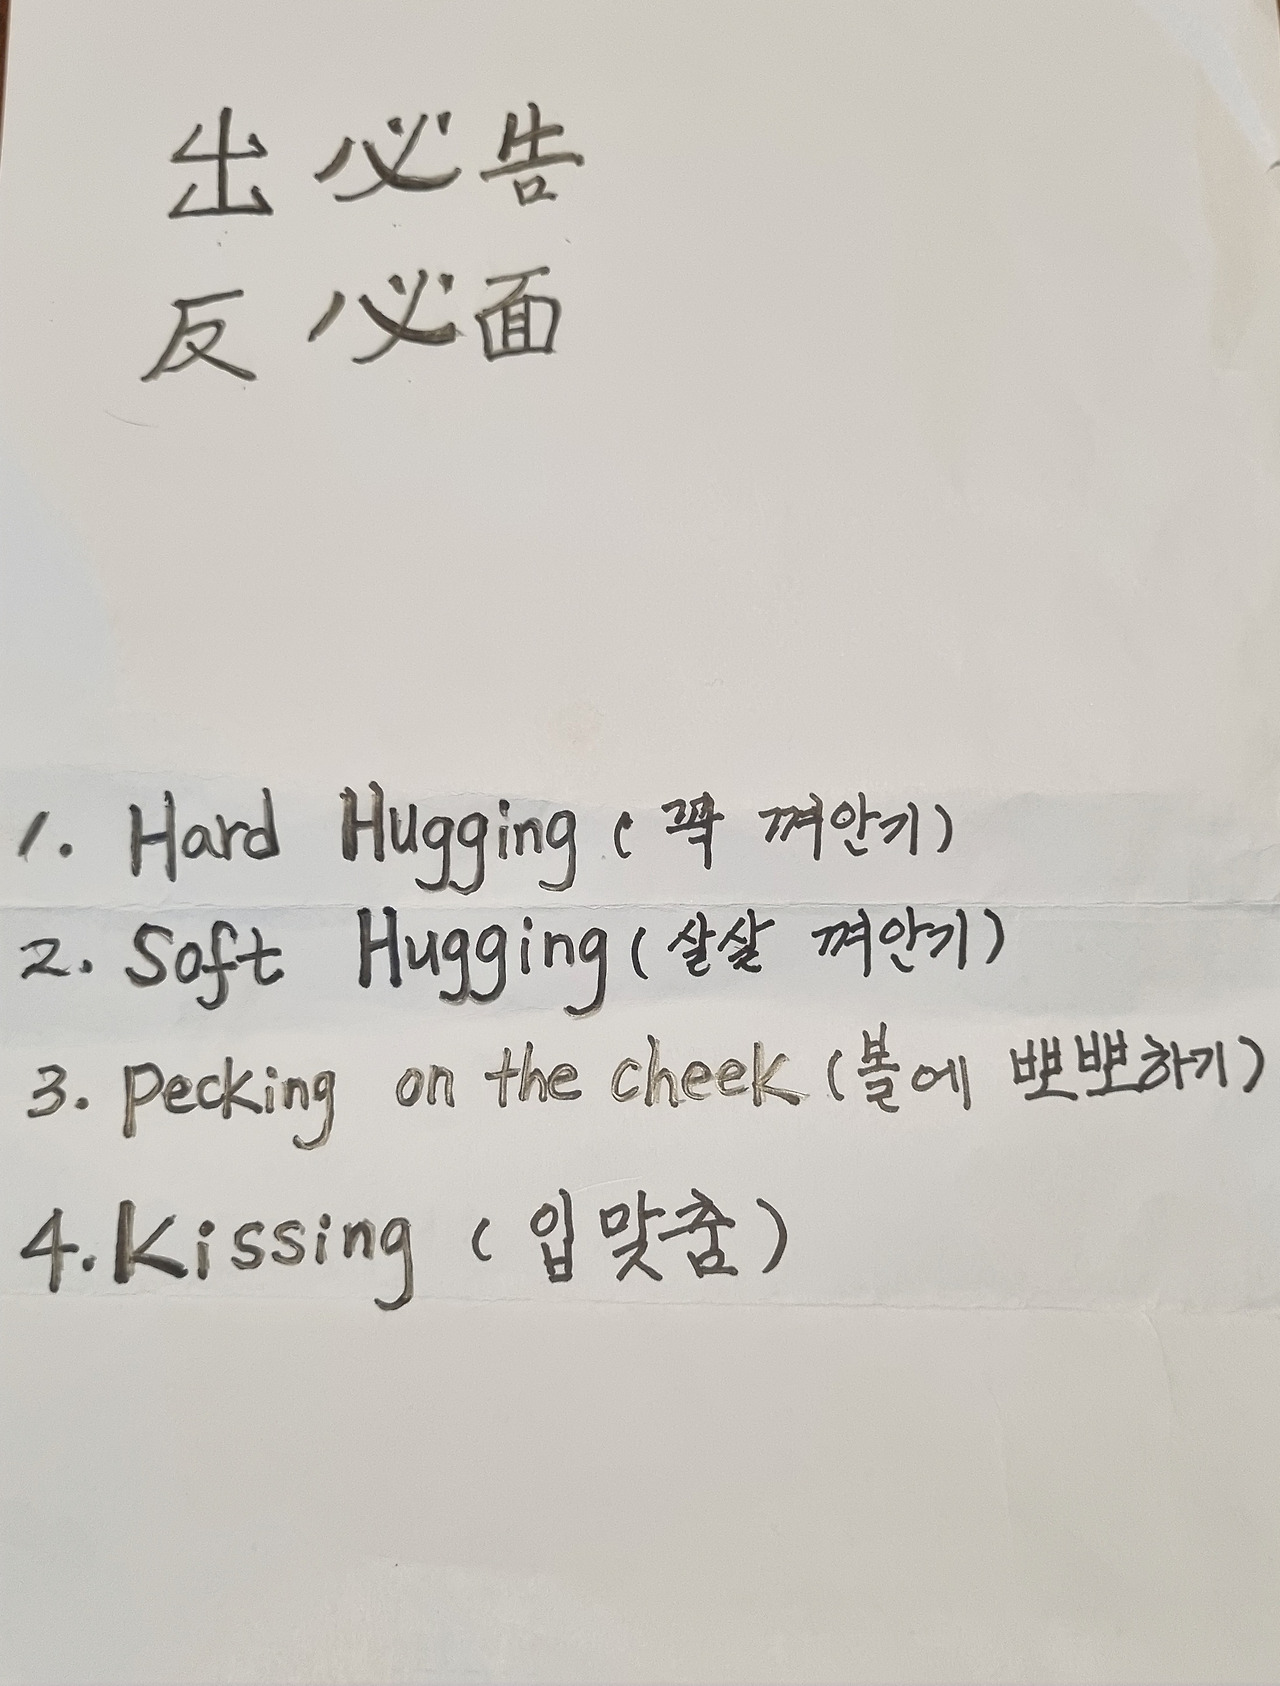 出 必 告
反 必 面
1. Hard Hugging (꽉 껴안기)
2. Soft Hugging (살살 껴안기)
3. Pecking on the cheek (볼에 뽀뽀하기)
4. Kissing (입맞춤)